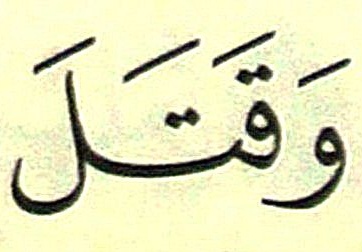 وَقَتَلَ